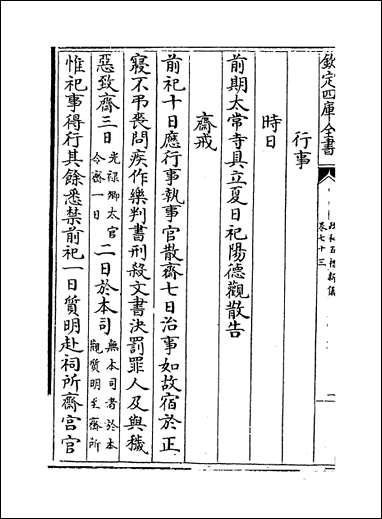 欽定四庫全書
政和五禮新儀
卷七十三
二
行事
時日
前期太常寺具立夏日祀陽德觀散告
齋戒
前祀十日應行事執事官散齋七日治事如故宿於正
寢不弔喪問疾作樂判書刑殺文書決罰罪人及與穢
惡致齋三日光祿卿太官令齋一日二日於本司無本司者於本觀質明至齋所
惟祀事得行其餘悉禁前祀一日質明赴祠所齋宮官